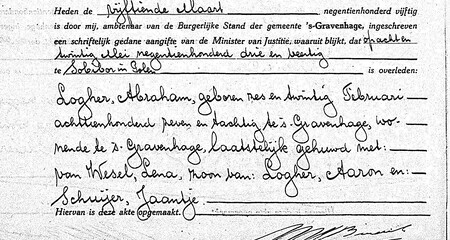 Heden de vijftiende Maart negentienhonderd vijftig
is door mij, ambtenaar van de Burgerlijke Stand der gemeente 's-Gravenhage, ingeschreven
een schriftelijk gedane aangifte van de Minister van Justitie, waaruit blijkt, dat op acht en
twintig Mei negentienhonderd drie en veertig
te Sobibor in Polen is overleden:
Logher, Abraham, geboren zes en twintig Februari
achttienhonderd zeven en tachtig te 's-Gravenhage, wo-
nende te 's-Gravenhage, laatstelijk gehuwd met:
van Wesel, Lena, zoon van: Logher, Aaron en:
Schuijer, Jaantje.
Hiervan is deze akte opgemaakt.